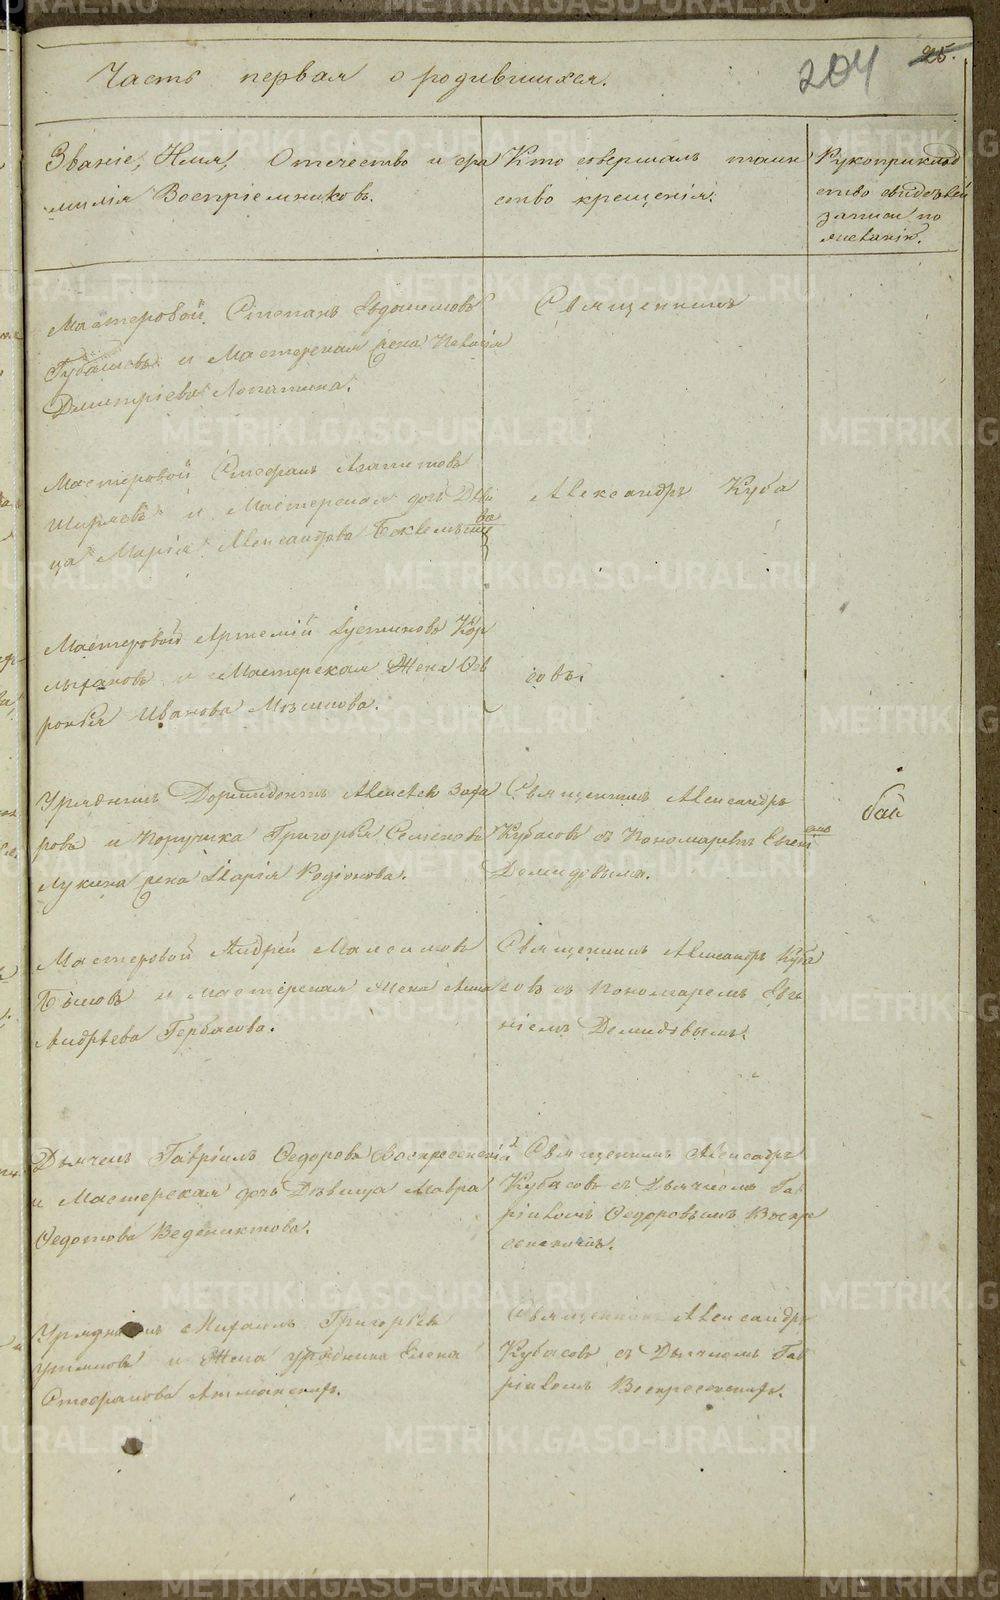 Часть первая о родившихся.
204
25.
Званіе, Имя, Отечество и фа
милія Воспріемниковъ.
Кто совершалъ таин
ство крещенія.
Рукоприклад
ство свидѣтелей
записи по
желанію.
Мастеровой Степанъ
и Мастерская жена
Дмитріева Лопатина.
Священникъ
Мастеровой Стефанъ
Ширяевъ и Мастерская дочь Дѣви
ца Марія Александрова
Александръ Куба
Мастеровой Артемій Іустиновъ
и Мастерская Жена Ѳев
ронія Иванова
совъ.
Урядникъ Дормидонтъ Алексѣевъ Заха
ровъ и Поручика Григорья Семенова
Лукина жена Марія Родіонова.
Священникъ Александръ
Кубасовъ съ Пономаремъ Евген
іемъ
Демидовымъ.
Мастеровой Андрей Максимовъ
Бѣловъ и мастерская Жена Анна
Андреева Гербасова.
Священникъ Александръ Куба
совъ съ Пономаремъ Евге
ніемъ Демидовымъ.
Дьячекъ Гавріилъ Ѳедоровъ Воскресенскій
и Мастерская дочь Дѣвица Мавра
Ѳедотова Ведениктова.
Священникъ Александръ
Кубасовъ съ Дьячкомъ Гав
ріиломъ Ѳедоровымъ Воскре
сенскимъ.
Урядникъ Михаилъ Григорьевъ
и Жена урядника Елена
Стефанова
Священникъ Александръ
Кубасовъ съ Дьячкомъ Гав
ріиломъ Воскресенскимъ.
METRIKI.GASO-URAL.RU